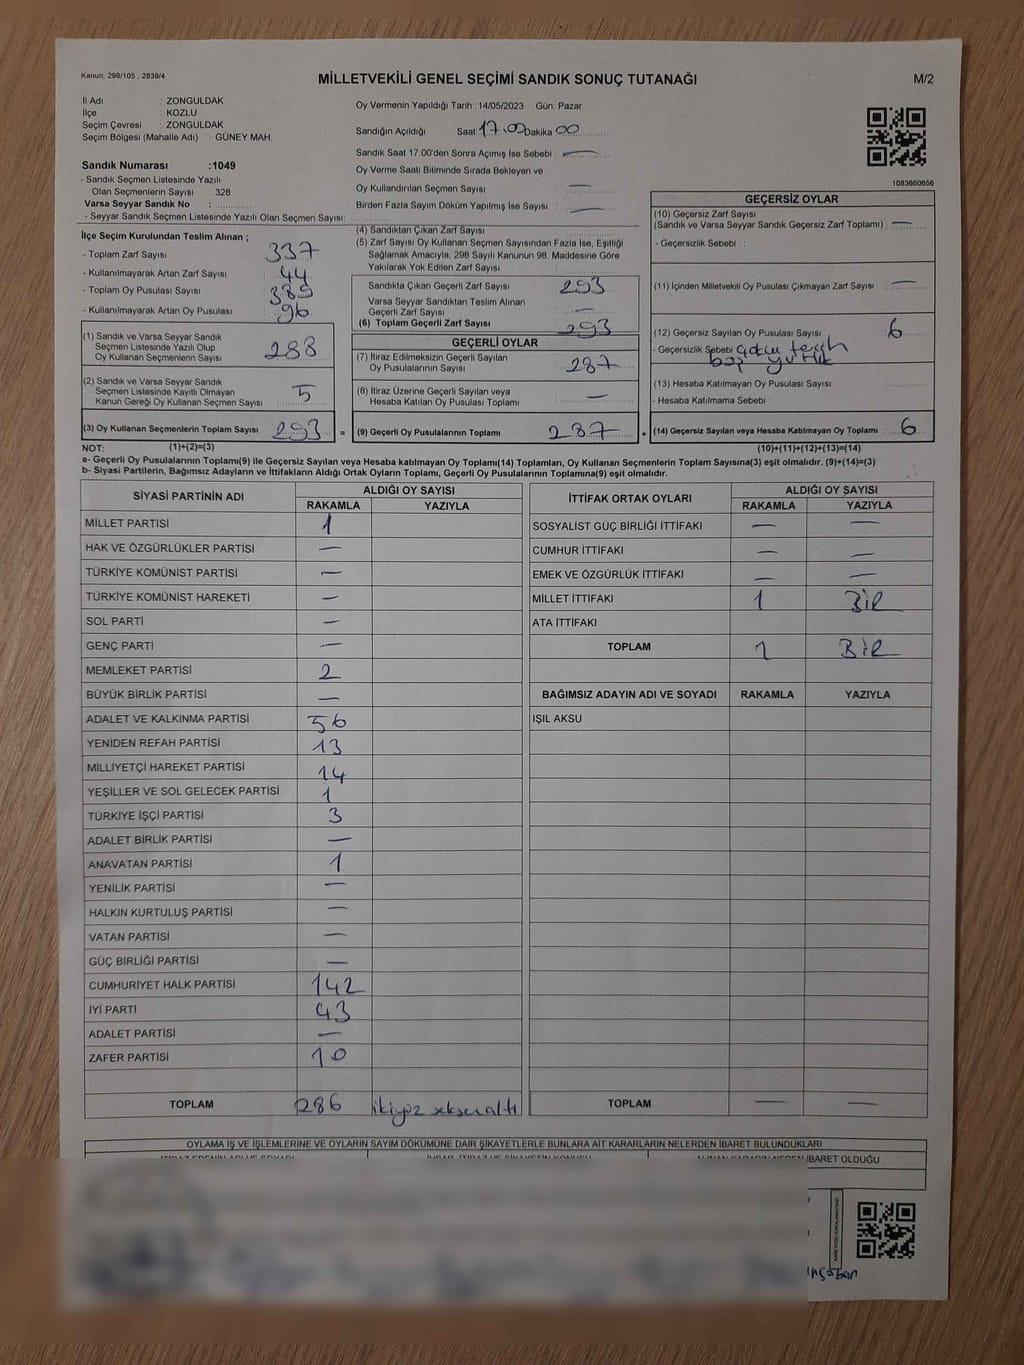 Kanun; 298/105 , 2839/4
MİLLETVEKİLİ GENEL SEÇİMİ SANDIK SONUÇ TUTANAĞI
M/2
İl Adı : ZONGULDAK
İlçe : KOZLU
Seçim Çevresi : ZONGULDAK
Seçim Bölgesi (Mahalle Adı) : GÜNEY MAH.
Sandık Numarası :1049
- Sandık Seçmen Listesinde Yazılı
Olan Seçmenlerin Sayısı : 328
Varsa Seyyar Sandık No :
- Seyyar Sandık Seçmen Listesinde Yazılı Olan Seçmen Sayısı:
Oy Vermenin Yapıldığı Tarih :14/05/2023 Gün: Pazar
Sandığın Açıldığı Saat 17.00 Dakika 00
Sandık Saat 17:00'den Sonra Açımış İse Sebebi: —
Oy Verme Saati Bitiminde Sırada Bekleyen ve
Oy Kullandırılan Seçmen Sayısı —
Birden Fazla Sayım Döküm Yapılmış İse Sayısı —
1083660656
İlçe Seçim Kurulundan Teslim Alınan ;
- Toplam Zarf Sayısı 337
- Kullanılmayarak Artan Zarf Sayısı 44
- Toplam Oy Pusulası Sayısı 389
- Kullanılmayarak Artan Oy Pusulası 96
(1) Sandık ve Varsa Seyyar Sandık
Seçmen Listesinde Yazılı Olup
Oy Kullanan Seçmenlerin Sayısı 288
(2) Sandık ve Varsa Seyyar Sandık
Seçmen Listesinde Kayıtlı Olmayan
Kanun Gereği Oy Kullanan Seçmen Sayısı 5
(3) Oy Kullanan Seçmenlerin Toplam Sayısı 293 =
(4) Sandıktan Çıkan Zarf Sayısı
(5) Zarf Sayısı Oy Kullanan Seçmen Sayısından Fazla İse, Eşitliği
Sağlamak Amacıyla, 298 Sayılı Kanunun 98. Maddesine Göre
Yakılarak Yok Edilen Zarf Sayısı
Sandıkta Çıkan Geçerli Zarf Sayısı 293
Varsa Seyyar Sandıktan Teslim Alınan
Geçerli Zarf Sayısı —
(6) Toplam Geçerli Zarf Sayısı 293
GEÇERLİ OYLAR
(7) İtiraz Edilmeksizin Geçerli Sayılan
Oy Pusulalarının Sayısı 287
(8) İtiraz Üzerine Geçerli Sayılan veya
Hesaba Katılan Oy Pusulası Toplamı —
(9) Geçerli Oy Pusulalarının Toplamı 287 +
GEÇERSİZ OYLAR
(10) Geçersiz Zarf Sayısı
(Sandık ve Varsa Seyyar Sandık Geçersiz Zarf Toplamı) —
- Geçersizlik Sebebi :
(11) İçinden Milletvekili Oy Pusulası Çıkmayan Zarf Sayısı —
(12) Geçersiz Sayılan Oy Pusulası Sayısı 6
- Geçersizlik Sebebi
(13) Hesaba Katılmayan Oy Pusulası Sayısı
- Hesaba Katılmama Sebebi
(14) Geçersiz Sayılan veya Hesaba Katılmayan Oy Toplamı 6
NOT: (1)+(2)=(3) (10)+(11)+(12)+(13)=(14)
a- Geçerli Oy Pusulalarının Toplamı(9) ile Geçersiz Sayılan veya Hesaba katılmayan Oy Toplamı(14) Toplamları, Oy Kullanan Seçmenlerin Toplam Sayısına(3) eşit olmalıdır. (9)+(14)=(3)
b- Siyasi Partilerin, Bağımsız Adayların ve İttifakların Aldığı Ortak Oyların Toplamı, Geçerli Oy Pusulalarının Toplamına(9) eşit olmalıdır.
SİYASİ PARTİNİN ADI ALDIĞI OY SAYISI
RAKAMLA YAZIYLA
MİLLET PARTİSİ 1
HAK VE ÖZGÜRLÜKLER PARTİSİ —
TÜRKİYE KOMÜNİST PARTİSİ —
TÜRKİYE KOMÜNİST HAREKETİ —
SOL PARTİ —
GENÇ PARTİ —
MEMLEKET PARTİSİ 2
BÜYÜK BİRLİK PARTİSİ —
ADALET VE KALKINMA PARTİSİ 56
YENİDEN REFAH PARTİSİ 13
MİLLİYETÇİ HAREKET PARTİSİ 14
YEŞİLLER VE SOL GELECEK PARTİSİ 1
TÜRKİYE İŞÇİ PARTİSİ 3
ADALET BİRLİK PARTİSİ —
ANAVATAN PARTİSİ 1
YENİLİK PARTİSİ —
HALKIN KURTULUŞ PARTİSİ —
VATAN PARTİSİ —
GÜÇ BİRLİĞİ PARTİSİ —
CUMHURİYET HALK PARTİSİ 142
İYİ PARTİ 43
ADALET PARTİSİ —
ZAFER PARTİSİ 10
TOPLAM 286 ikiyüz seksen altı
İTTİFAK ORTAK OYLARI ALDIĞI OY SAYISI
RAKAMLA YAZIYLA
SOSYALİST GÜÇ BİRLİĞİ İTTİFAKI — —
CUMHUR İTTİFAKI — —
EMEK VE ÖZGÜRLÜK İTTİFAKI — —
MİLLET İTTİFAKI 1 BİR
ATA İTTİFAKI
TOPLAM 1 BİR
BAĞIMSIZ ADAYIN ADI VE SOYADI RAKAMLA YAZIYLA
IŞIL AKSU
TOPLAM — —
OYLAMA İŞ VE İŞLEMLERİNE VE OYLARIN SAYIM DÖKÜMÜNE DAİR ŞİKAYETLERLE BUNLARA AİT KARARLARIN NELERDEN İBARET BULUNDUKLARI
İBARET OLDUĞU